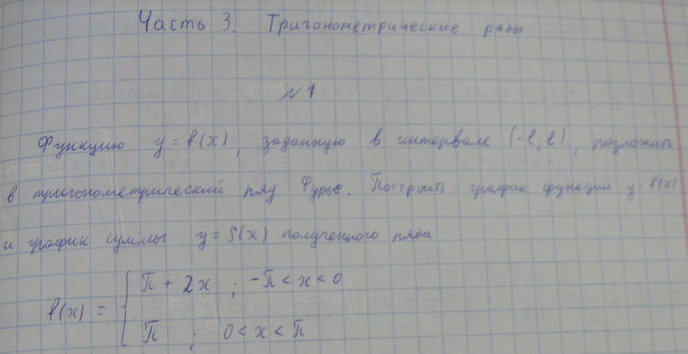 Часть 3. Тригонометрические ряды
№1
Функцию y = f(x), заданную в интервале (-ℓ, ℓ), разложить
в тригонометрический ряд Фурье. Построить график функции y = f(x)
и график суммы y = S(x) полученного ряда
f(x) = { π + 2x ; -π < x < 0
π ; 0 < x < π